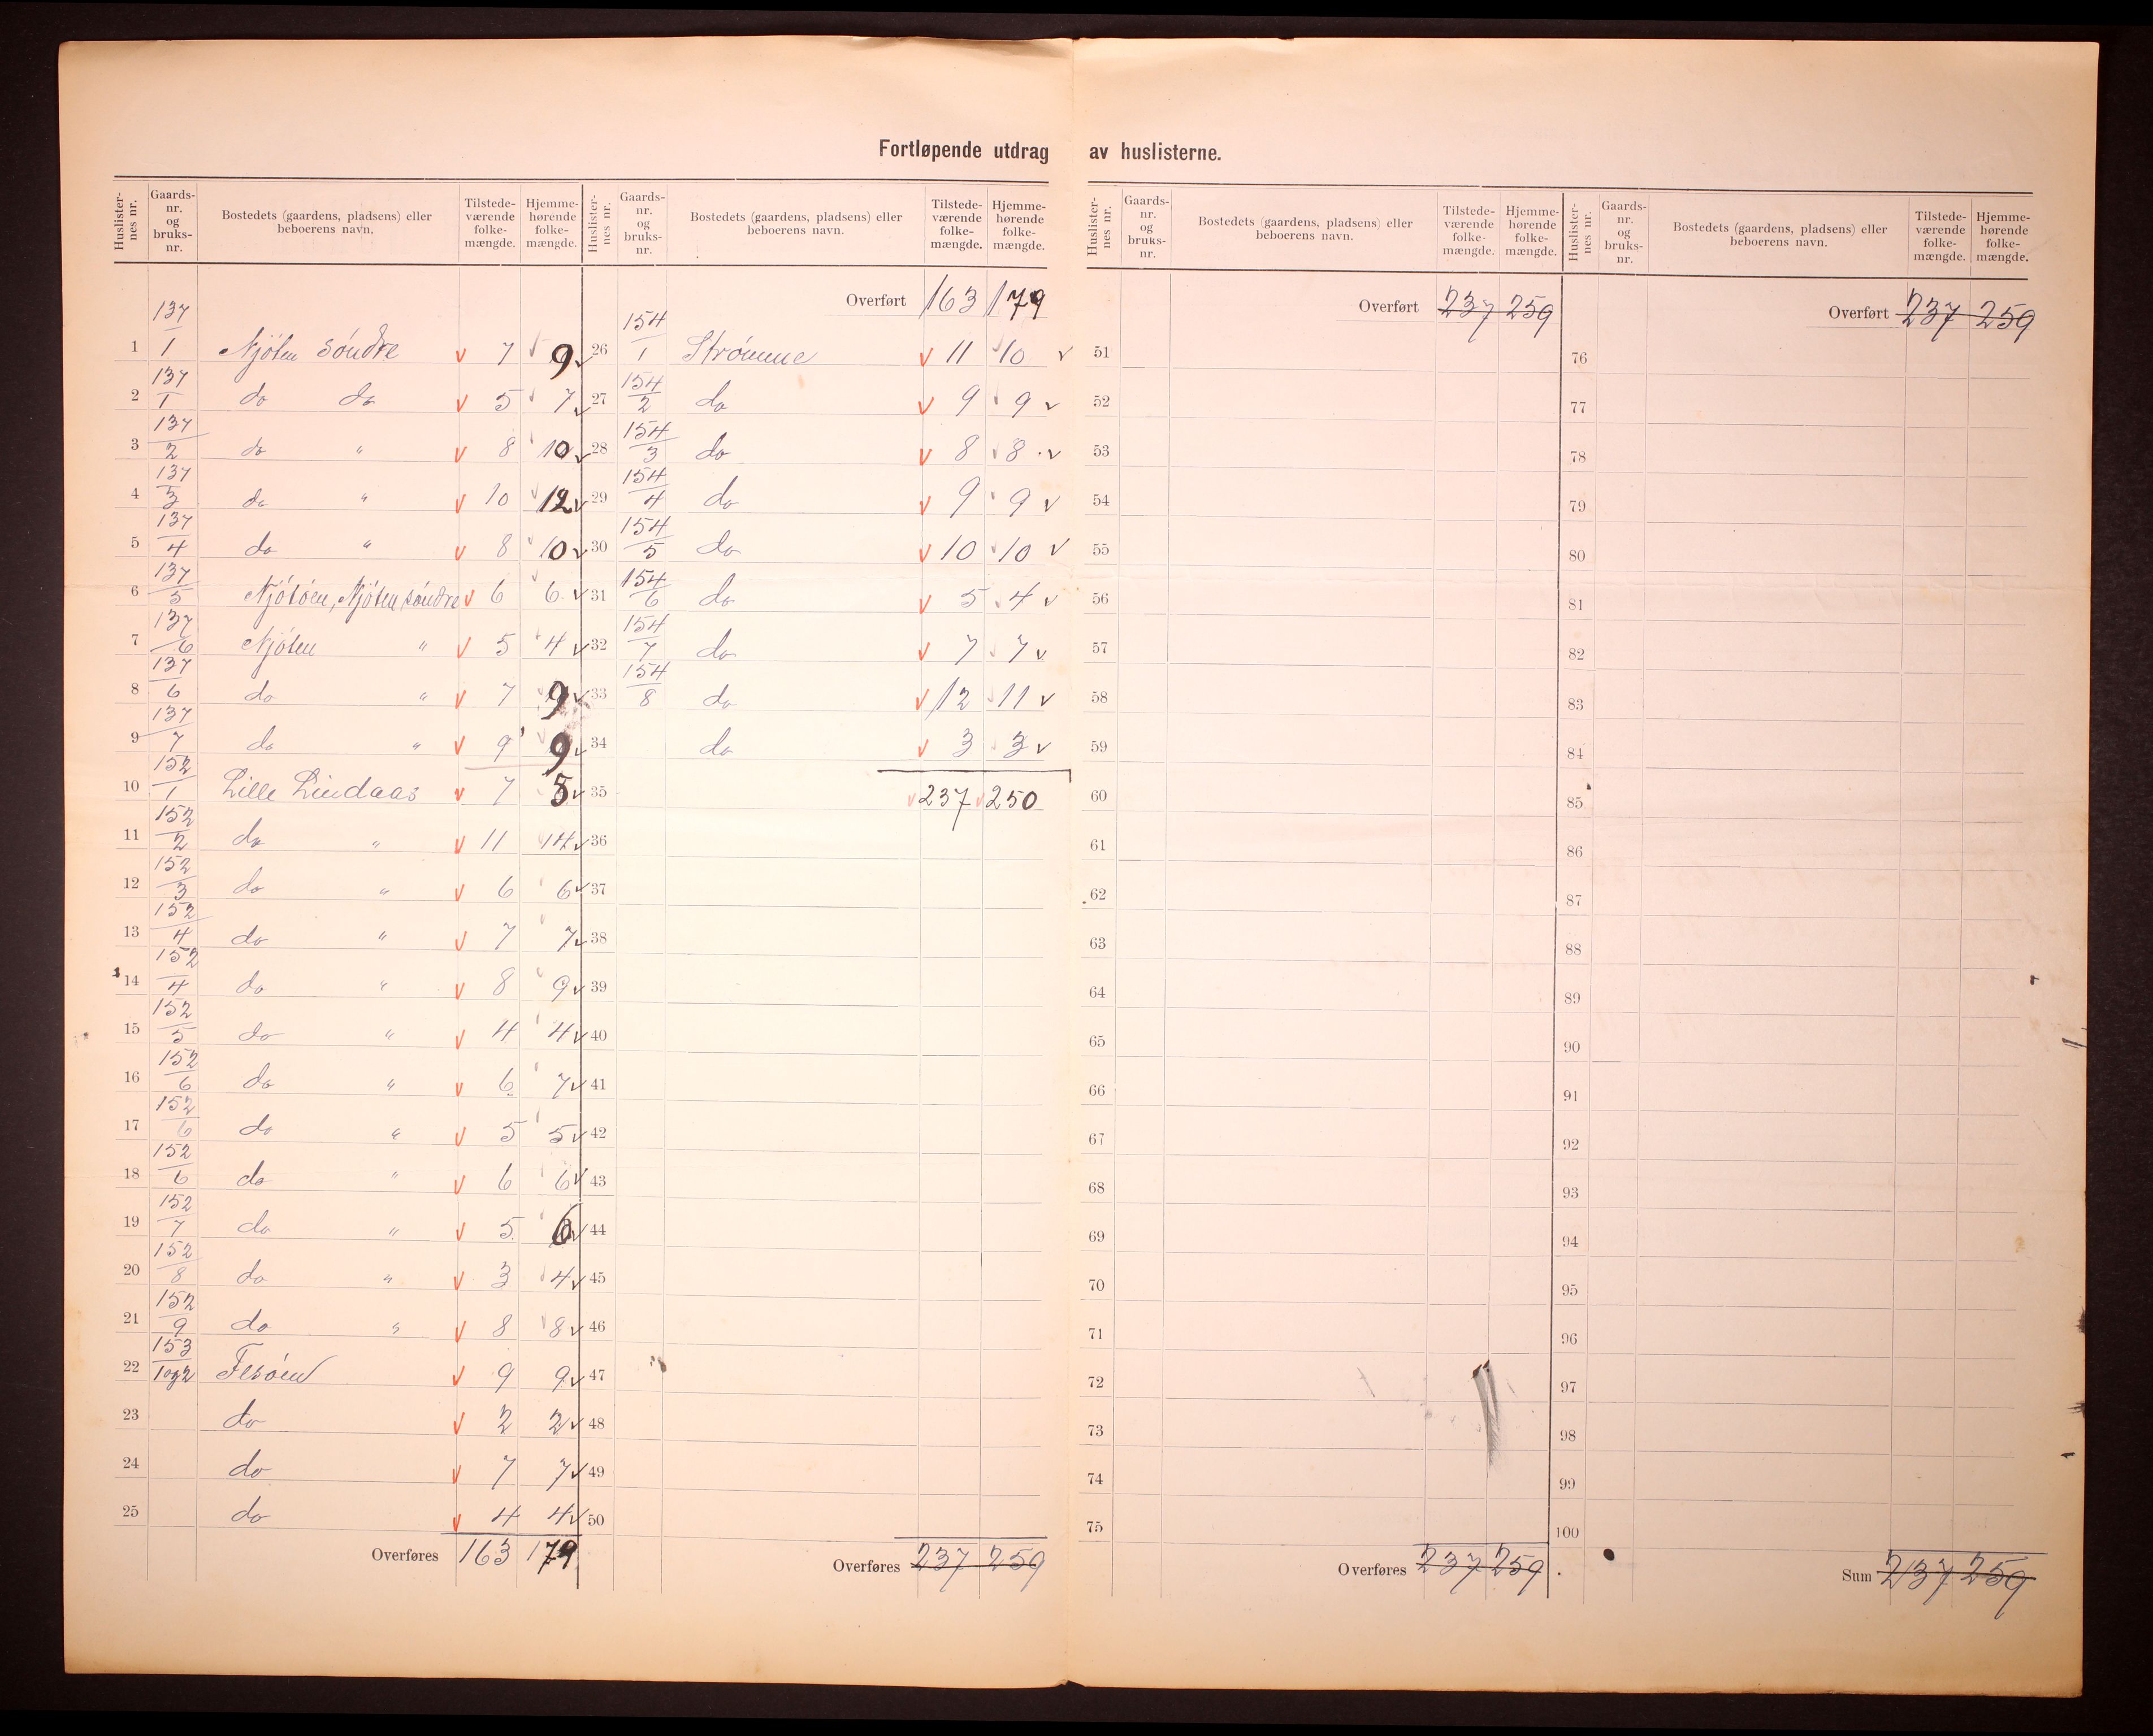 Fortløpende utdrag av huslisterne.
Huslister-nes nr. | Gaards-nr. og bruks-nr. | Bostedets (gaardens, pladsens) eller beboerens navn. | Tilstede-værende folke-mængde. | Hjemme-hørende folke-mængde.
1 137/1 Njöten söndre v 7 9 v
2 137/1 do do v 5 7 v
3 137/2 do " v 8 10 v
4 137/3 do " v 10 12 v
5 137/4 do " v 8 10 v
6 137/5 Njötöen, Njöten söndre v 6 6 v
7 137/6 Njöten " v 5 4 v
8 137/6 do " v 7 9 v
9 137/7 do " v 9 9 v
10 152/1 Lille Lindaas v 7 5 v
11 152/2 do " v 11 14 v
12 152/3 do " v 6 6 v
13 152/4 do " v 7 7 v
14 152/4 do " v 8 9 v
15 152/5 do " v 4 4 v
16 152/6 do " v 6 7 v
17 152/6 do " v 5 5 v
18 152/6 do " v 6 6 v
19 152/7 do " v 5 6 v
20 152/8 do " v 3 4 v
21 152/9 do " v 8 8 v
22 153/1og2 v 9 9 v
23 do v 2 2 v
24 do v 7 7 v
25 do v 4 4 v
Overføres 163 179
Huslister-nes nr. | Gaards-nr. og bruks-nr. | Bostedets (gaardens, pladsens) eller beboerens navn. | Tilstede-værende folke-mængde. | Hjemme-hørende folke-mængde.
Overført 163 179
26 154/1 Strömme v 11 10 v
27 154/2 do v 9 9 v
28 154/3 do v 8 8 v
29 154/4 do v 9 9 v
30 154/5 do v 10 10 v
31 154/6 do v 5 4 v
32 154/7 do v 7 7 v
33 154/8 do v 12 11 v
34 do v 3 3 v
35 v 237 v 250
36
37
38
39
40
41
42
43
44
45
46
47
48
49
50
Overføres 237 259
Huslister-nes nr. | Gaards-nr. og bruks-nr. | Bostedets (gaardens, pladsens) eller beboerens navn. | Tilstede-værende folke-mængde. | Hjemme-hørende folke-mængde.
Overført 237 259
51
52
53
54
55
56
57
58
59
60
61
62
63
64
65
66
67
68
69
70
71
72
73
74
75
Overføres 237 259
Huslister-nes nr. | Gaards-nr. og bruks-nr. | Bostedets (gaardens, pladsens) eller beboerens navn. | Tilstede-værende folke-mængde. | Hjemme-hørende folke-mængde.
Overført 237 259
76
77
78
79
80
81
82
83
84
85
86
87
88
89
90
91
92
93
94
95
96
97
98
99
100
Sum 237 259